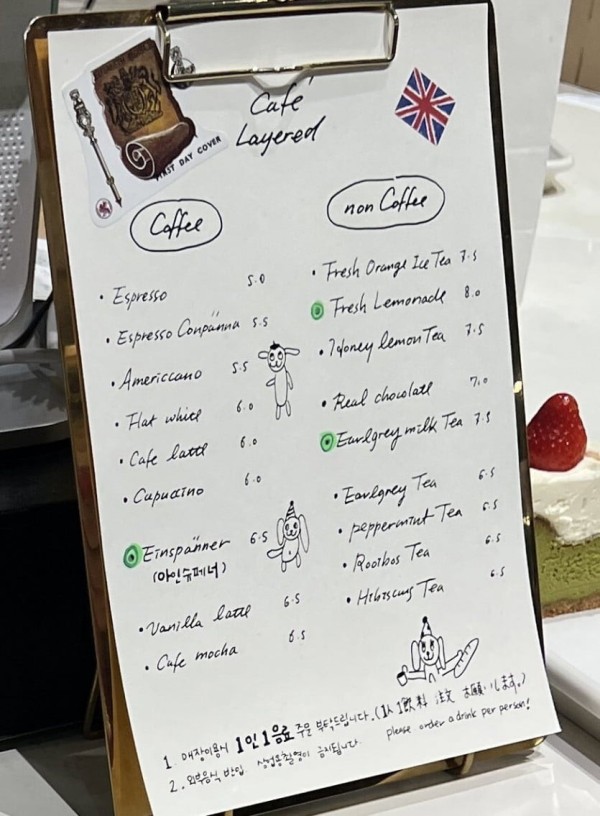 FIRST DAY COVER
Café
Layered
Coffee
• Espresso 5.0
• Espresso Conpänna 5.5
• Americcano 5.5
• Flat white 6.0
• Cafe latte 6.0
• Capuccino 6.0
Einspänner 6.5
(아인슈페너)
• Vanilla latte 6.5
• Cafe mocha 6.5
non Coffee
• Fresh Orange Ice Tea 7.5
Fresh Lemonade 8.0
• Honey lemon Tea 7.5
• Real chocolate 7.0
Earlgrey milk Tea 7.5
• Earlgrey Tea 6.5
• peppermint Tea 6.5
• Rooibos Tea 6.5
• Hibiscus Tea 6.5
1. 매장이용시 1인 1음료 주문 부탁드립니다. (1人 1飲料 注文 お願いします。)
please order a drink per person!
2. 외부음식 반입, 상업용촬영이 금지됩니다.